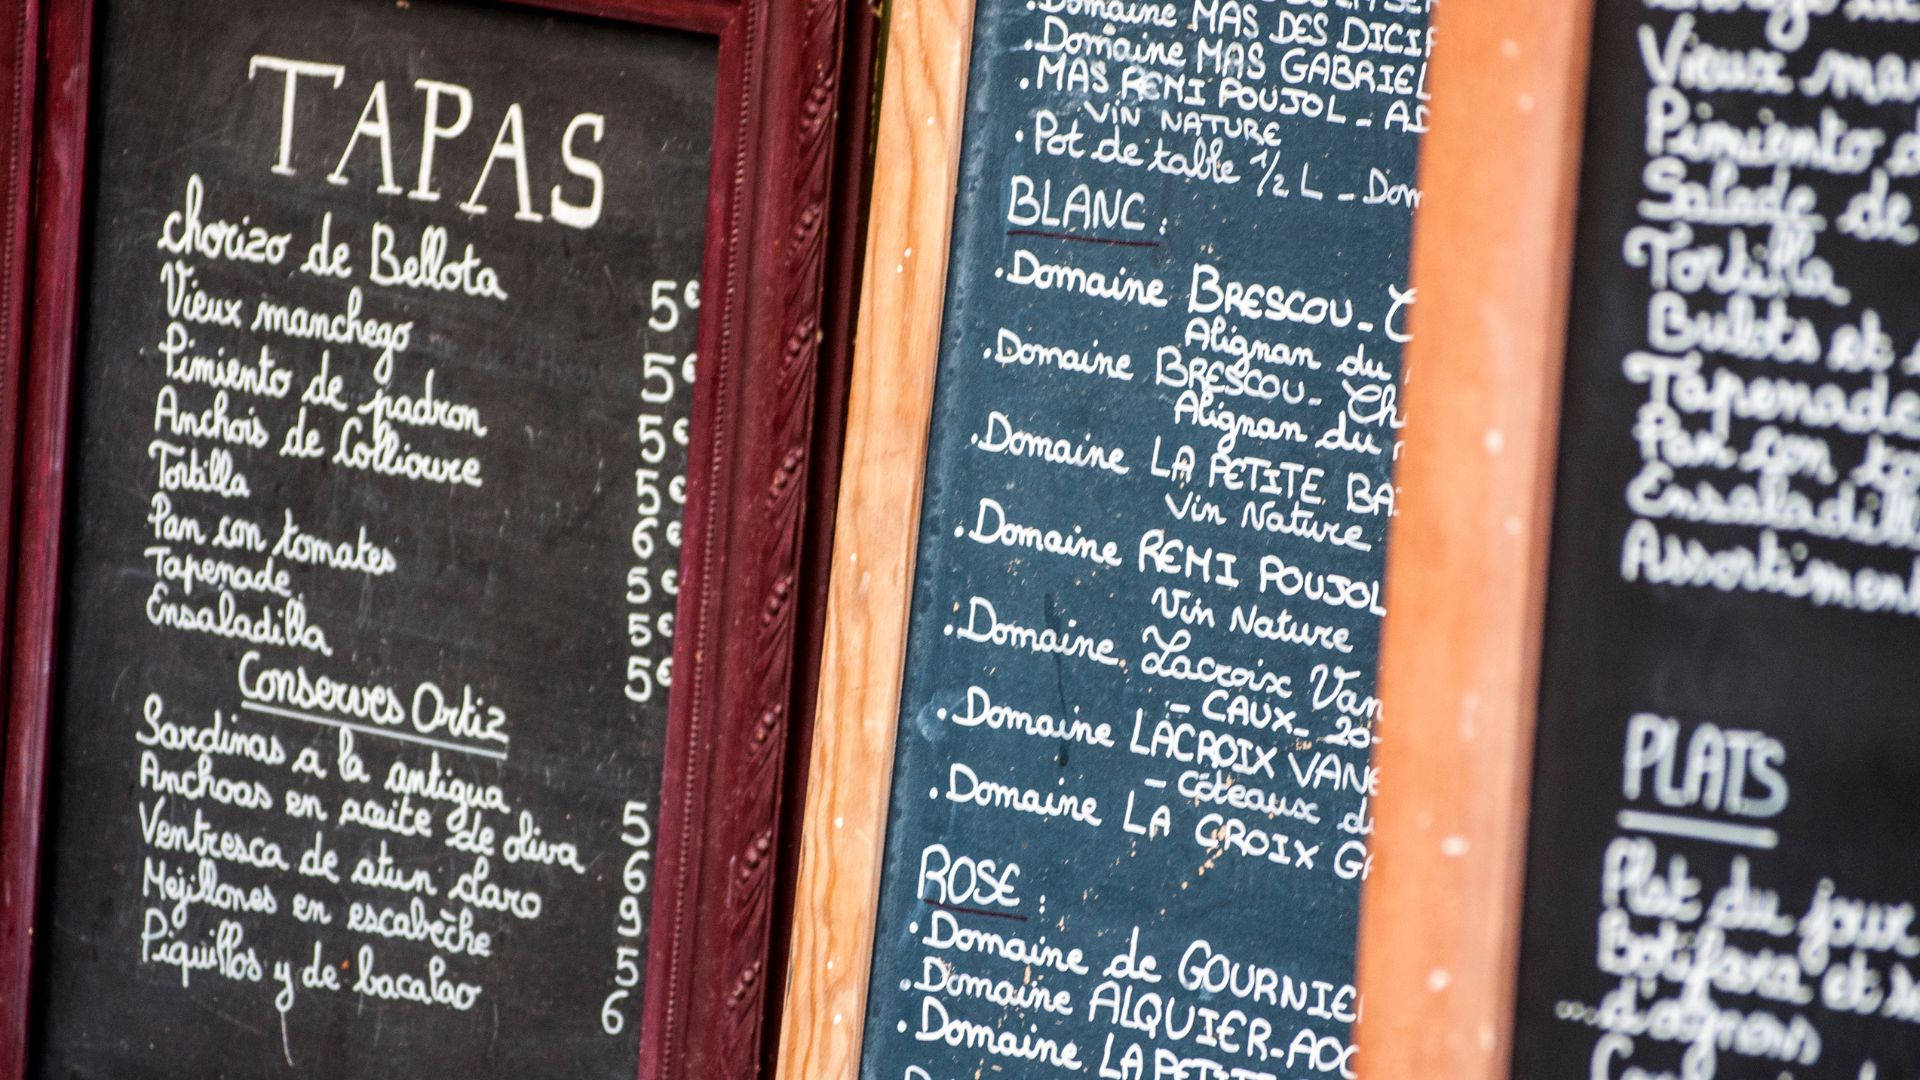 TAPAS
chorizo de Bellota 5€
Vieux manchego 5€
Pimiento de padron 5€
Anchois de Collioure 5€
Tortilla 6€
Pan con tomates 5€
Tapenade 5€
Ensaladilla 5€
Conserves Ortiz
Sardinas a la antigua 5
Anchoas en aceite de oliva 6
Ventresca de atun claro 9
Mejillones en escabèche 5
Piquillos y de bacalao 6
.Domaine MAS DES
.Domaine MAS GABRIEL
.MAS REMI POUJOL -
VIN NATURE
.Pot de table 1/2 L -
BLANC :
.Domaine BRESCOU -
Alignan du
.Domaine BRESCOU -
Alignan du
.Domaine LA PETITE
Vin Nature
.Domaine REMI POUJOL
Vin Nature
.Domaine Lacroix
- CAUX -
.Domaine LACROIX
- Côteaux
.Domaine LA CROIX
ROSE :
.Domaine de
.Domaine ALQUIER -
.Domaine LA
Vieux
Pimiento
Salade de
Tortilla
Bulots et
Tapenade
Pan con
PLATS
Plat du jour
Botifara et
...d'agnos